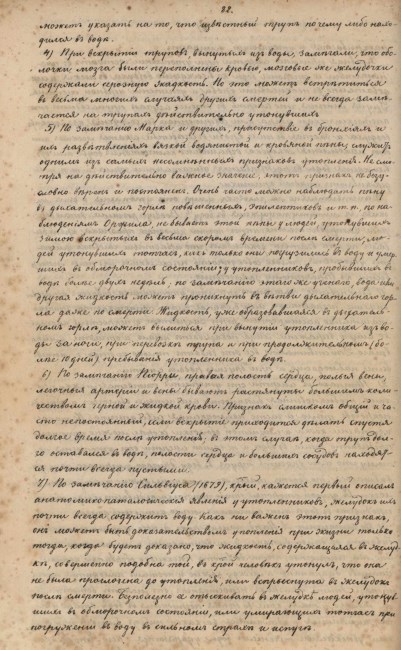 22.
можетъ указать на то, что известный трупъ почему либо нахо-
дился въ водѣ.
4) При вскрытіи труповъ, вынутыхъ изъ воды, замѣчали, что обо-
лочки мозга были переполнены кровью, мозговые же желудочки
содержали серозную жидкость. Но это можетъ встрѣтиться
въ весьма многихъ случаяхъ другихъ смертей и не всегда замѣ-
чается на трупахъ дѣйствительно утонувшихъ
5) По замѣчанію Марка и другихъ, присутствіе въ бронхіяхъ и
ихъ развѣтвленіяхъ вязкой водянистой и кровяной пѣны служитъ
однимъ изъ самыхъ несомнѣнныхъ признаковъ утопленія. Не смо-
тря на дѣйствительно важное значеніе, этотъ признакъ не безу-
словно вѣренъ и постояненъ. Очень часто можно наблюдать пѣну
въ дыхательномъ горлѣ повѣшенныхъ, эпилептиковъ и т. п. по на-
блюденіямъ Орфила, не бываетъ этой пѣны у людей, утонувшихъ
зимою вскрытыхъ въ весьма скоромъ времени послѣ смерти, лю-
дей утонувшихъ тотчасъ, какъ только они погрузились въ воду и умер-
шихъ въ обморочномъ состояніи; у утопленниковъ, пробывшихъ въ
водѣ болѣе двухъ недѣль, по замѣчанію этого же ученаго, вода или
другая жидкость можетъ проникнуть въ вѣтви дыхательнаго гор-
ла даже по смерти. Жидкость, уже образовавшаяся въ дыхатель-
номъ горлѣ, можетъ вылиться при вынутіи утопленника изъ во-
ды за ноги, при перевозкѣ трупа и при продолжительномъ (бо-
лѣе 10 дней) пребываніи утопленника въ водѣ.
6) По замѣчанію правая полость сердца, полыя вены,
легочныя артеріи и вены бываютъ растянуты большимъ коли-
чествомъ черной и жидкой крови. Признакъ слишкомъ общій и ча-
сто непостоянный, если вскрытіе приходится дѣлать спустя
долгое время послѣ утопленія; въ этомъ случаѣ, когда трупъ дол-
го оставался въ водѣ, полости сердца и большихъ сосудовъ находят-
ся почти всегда пустыми.
7) По замѣчанію Сильвіуса (1679), крой, кажется первый описалъ
анатомико-патологическія явленія у утопленниковъ, желудокъ ихъ
почти всегда содержитъ воду. Какъ ни важенъ этотъ признакъ,
онъ можетъ быть доказательствомъ утопленія при жизни только
тогда, когда будетъ доказано, что жидкость, содержащаяся въ желуд-
кѣ, совершенно подобна той, въ крой человѣкъ утонулъ, что она
не была проглочена до утопленія, или впрыснута въ желудокъ
послѣ смерти. Бесполезно и отыскивать въ желудкѣ людей, утонув-
шихъ въ обморочномъ состояніи, или умирающихъ тотчасъ при
погруженіи въ воду въ сильномъ страхѣ и испугѣ